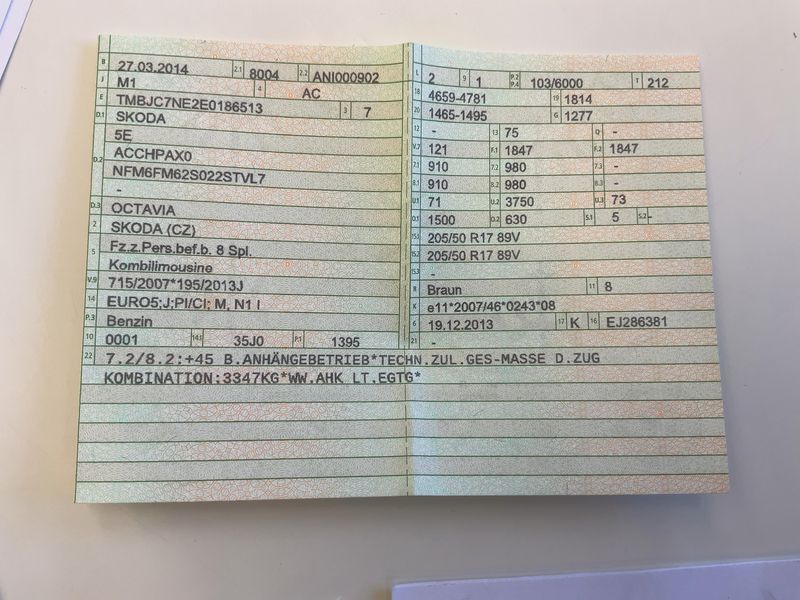 B 27.03.2014 2.1 8004 2.2 ANI000902
J M1 4 AC
E TMBJC7NE2E0186513 3 7
D.1 SKODA
5E
D.2 ACCHPAX0
NFM6FM62S022STVL7
-
D.3 OCTAVIA
2 SKODA (CZ)
5 Fz.z.Pers.bef.b. 8 Spl.
Kombilimousine
V.9 715/2007*195/2013J
14 EURO5;J;PI/CI; M, N1 I
P.3 Benzin
10 0001 14.1 35J0 P.1 1395
L 2 9 1 P.2 P.4 103/6000 T 212
18 4659-4781 19 1814
20 1465-1495 G 1277
12 - 13 75 Q -
V.7 121 F.1 1847 F.2 1847
7.1 910 7.2 980 7.3 -
8.1 910 8.2 980 8.3 -
U.1 71 U.2 3750 U.3 73
O.1 1500 O.2 630 S.1 5 S.2 -
15.1 205/50 R17 89V
15.2 205/50 R17 89V
15.3 -
R Braun 11 8
K e11*2007/46*0243*08
6 19.12.2013 17 K 16 EJ286381
21 -
22 7.2/8.2:+45 B.ANHÄNGEBETRIEB*TECHN.ZUL.GES-MASSE D.ZUG
KOMBINATION:3347KG*WW.AHK LT.EGTG*